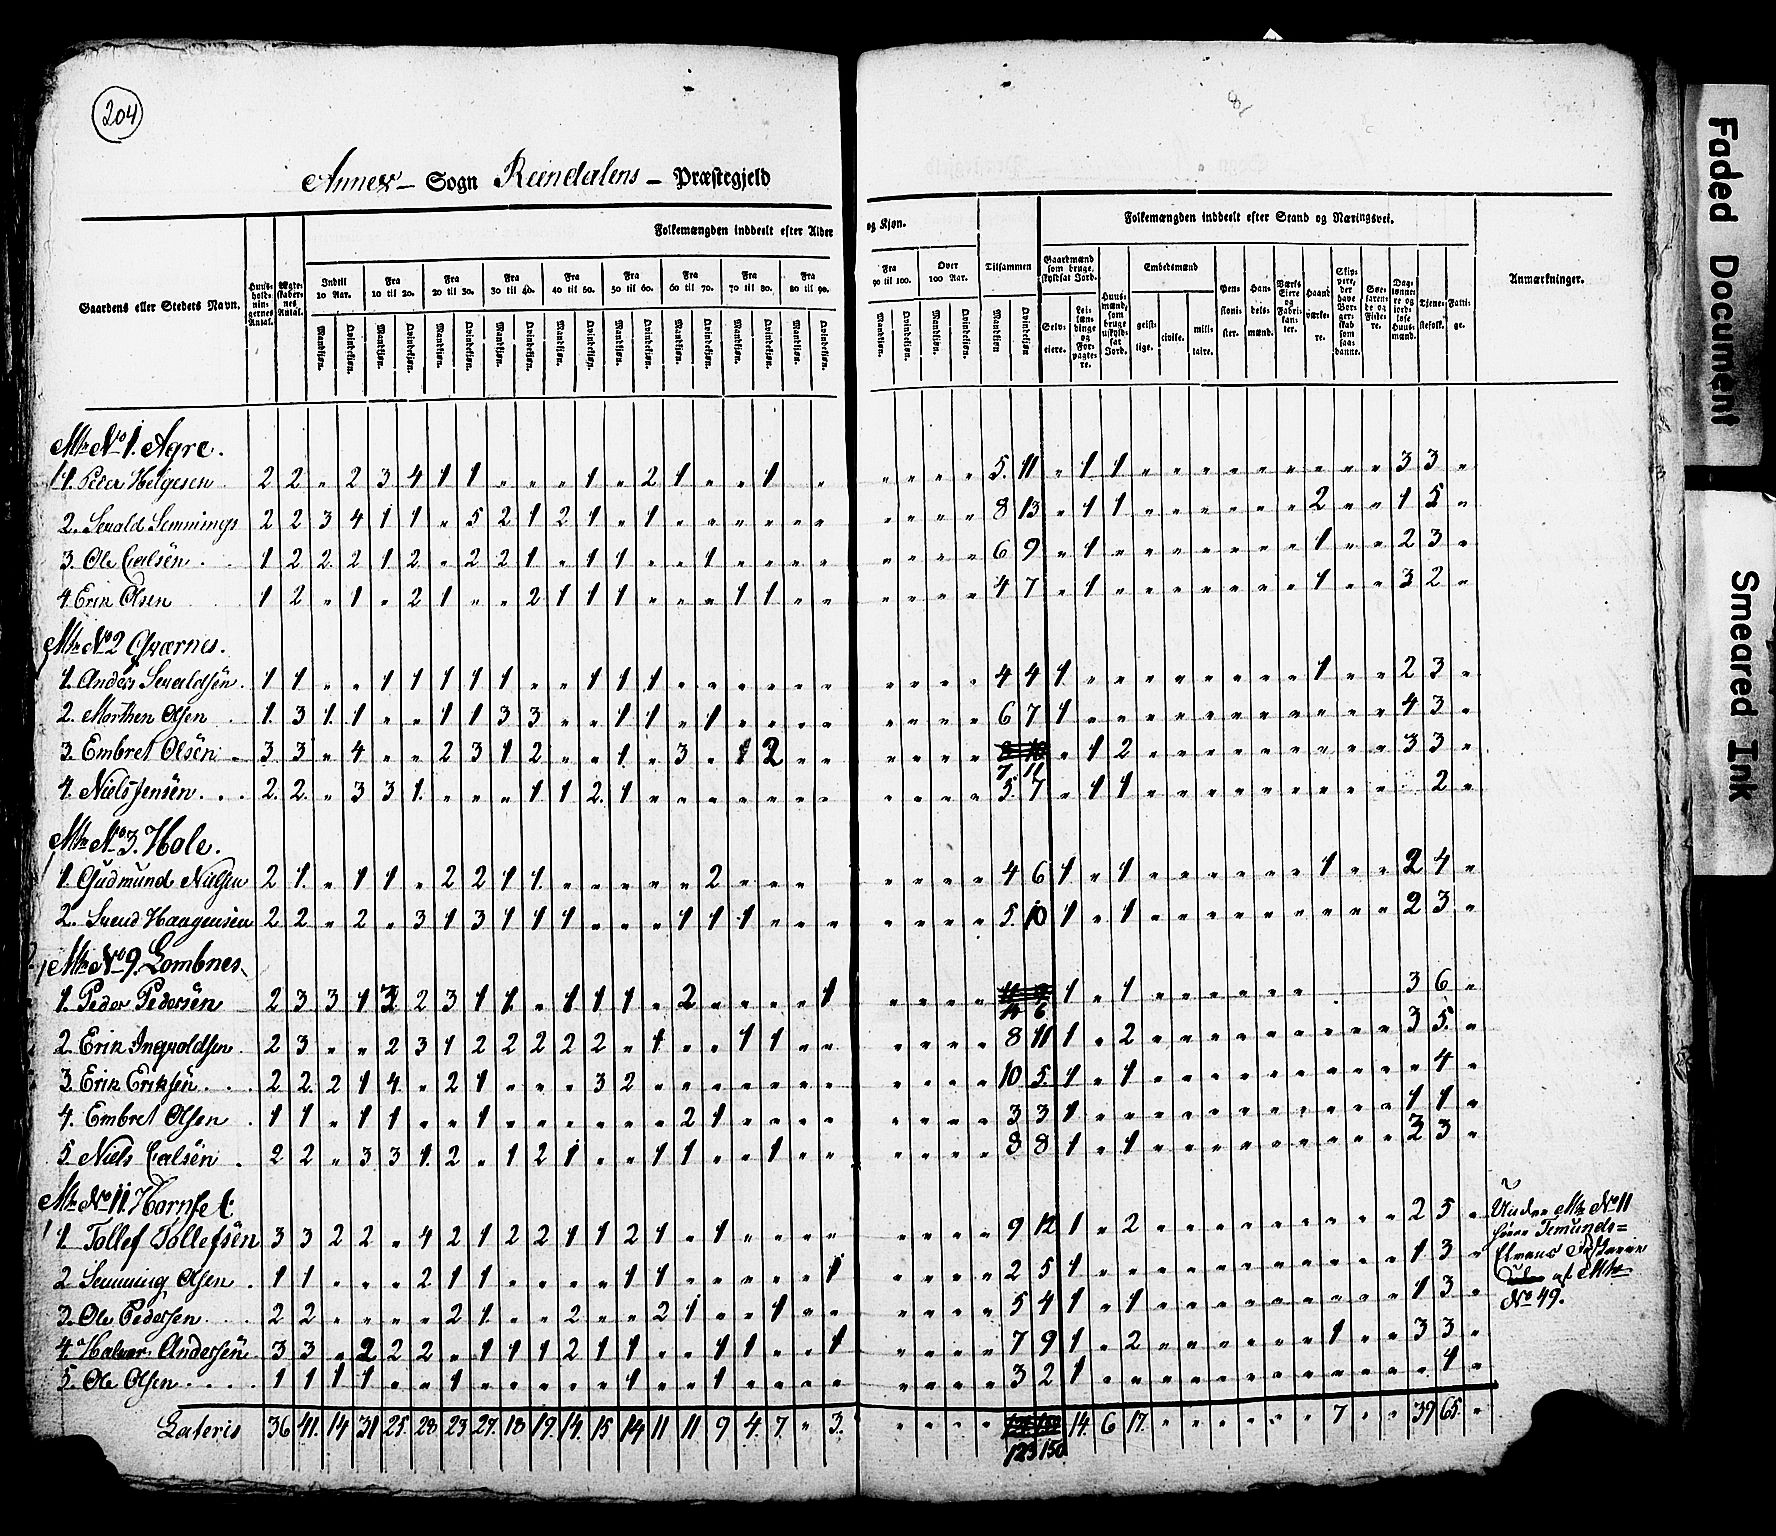 204
8
Annex — Sogn Rendalens — Præstegjeld
Folkemængden inddeelt efter Alder og Kjøn.
Folkemængden inddeelt efter Stand og Næringsvei.
Gaardens eller Stedets Navn.
Huus-holdnin-gernes Antal.
Ægte-skaber-nes Antal.
Indtil 10 Aar.
Fra 10 til 20.
Fra 20 til 30.
Fra 30 til 40.
Fra 40 til 50.
Fra 50 til 60.
Fra 60 til 70.
Fra 70 til 80.
Fra 80 til 90.
Fra 90 til 100.
Over 100 Aar.
Tilsammen
Mandkjøn. Qvindekjøn.
Gaardmænd som bruge skyldsat Jord.
Selv-eiere.
Lei-lændinge og For-pagte-re.
Huus-mænd, som bruge uskyld-sat Jord.
Embedsmænd
geist-lige.
civile.
mili-taire.
Pen-sioni-ster.
Han-dels-mænd.
Værks Eiere og Fabri-kan-ter.
Haand-værke-re.
Skip-pere, der have Bor-ger-skab som saa-danne.
Søe-farende og Fiske-re.
Dag-lønne-re og jord-løse Huus-mænd.
Tjene-stefolk.
Fatti-ge.
Anmærkninger.
Mtr No 1. Agre.
1. Peter Helgesen 2 2 " 2 3 4 1 1 " " " 1 " 2 1 " " 1 " " " " " 5 11 " 1 1 " " " " " " " " " 3 3 "
2. Sevald Semmings 2 2 3 4 1 1 " 5 2 1 2 1 " 1 " " " " " " " " " " 8 13 " 1 1 " " " " " " 2 " " 1 5 "
3. Ole Carlsen 1 2 2 2 1 2 " 2 2 1 " 1 1 " " 1 " " " " " " " " 6 9 " 1 " " " " " " " 1 " " 2 3 "
4. Erik Olsen 1 2 " 1 " 2 1 " " 2 1 1 1 " " " 1 1 " " " " " " 4 7 " 1 " " " " " " " 1 " " 3 2 "
Mtr No 2 Qværnes.
1. Anders Sevaldsen 1 1 " " 1 1 1 1 1 " " 1 1 1 " " " " " " " " " " 4 4 1 " " " " " " " " 1 " " 2 3 "
2. Morthen Olsen 1 3 1 1 " " 1 1 3 3 " " 1 1 " 1 " " " " " " " " 6 7 1 " " " " " " " " " " " 4 3 "
3. Embret Olsen 3 3 " 4 " " 2 3 1 2 " " 1 " 3 " 1 2 " " " " " " 7 11 " 1 2 " " " " " " " " " 3 3 "
4. Niels Jensen 2 2 " 3 3 1 " " " 1 1 2 1 " " " " " " " " " " " 5 7 " 1 1 " " " " " " " " " 2 "
Mtr No 3. Hole.
1. Gudmund Nielsen 2 1 " 1 1 " 2 2 1 1 " " " " " 2 " " " " " " " 4 6 1 " 1 " " " " " " 1 " " 2 4 "
2. Svend Haagensen 2 2 " 2 " 3 1 3 1 1 1 " " " 1 1 1 " " " " " " " 5 10 1 " 1 " " " " " " " " " 2 3 "
Mtr No 9. Lombnes
1. Peder Pedersen 2 3 3 1 3 2 3 1 1 " 1 1 1 " 2 " " " " 1 " " " " 14 6 1 " 1 " " " " " " 3 6 "
2. Erik Ingvoldsen 2 3 " " 2 3 1 2 2 2 2 2 " 1 " " 1 1 " " " " " " 8 11 1 " 2 " " " " " " " " " 3 5 "
3. Erik Eriksen 2 2 2 1 4 " 2 1 " " " 3 2 " " " " " " " " " " " 10 5 1 " 1 " " " " " " " " " " 4 "
4. Embret Olsen 1 1 " 1 1 " " 1 " " " " " " 2 1 " " " " " " " " 3 3 1 " " " " " " " " " " " 1 1 "
5. Niels Carlsen 2 2 " 3 3 1 2 " 1 2 1 " " 1 1 " " 1 " " " " " " 8 8 1 " 1 " " " " " " " " " 2 3 "
Mtr No 11. Hornset
1. Tollef Tollefsen 3 3 2 2 " 4 2 1 2 2 1 1 2 1 " 1 " " " " " " " " 9 12 1 " 2 " " " " " " " " " 2 5 "
2. Semming Olsen 1 1 " " " 2 1 1 " " " " 1 1 " " " " " 1 " " " " 2 5 1 " " " " " " " " " " " 1 3 "
3. Ole Pedersen 2 2 " " " " 2 1 " " 2 " " 2 1 " " 1 " " " " " " 5 4 1 " 1 " " " " " " " " " 1 3 "
4. Halvor Andersen 3 3 " 2 2 2 " 1 1 1 2 1 1 " " 1 1 " " 1 " " " " 7 9 1 " 2 " " " " " " 1 " " 3 3 "
5. Ole Olsen 1 1 1 1 " " 1 " " " " " 1 " " 1 " " " " " " " " 3 2 1 " " " " " " " " " " " " 1 "
Under Mtr No 11
hører
Elvens
af Mtr
No 49.
Lateris 36 41 14 31 25 28 23 27 18 19 14 15 14 11 11 9 4 7 " 3 " " " " 123 150 14 6 17 " " " " " " 7 " " 39 65 "
Faded Document
Smeared Ink